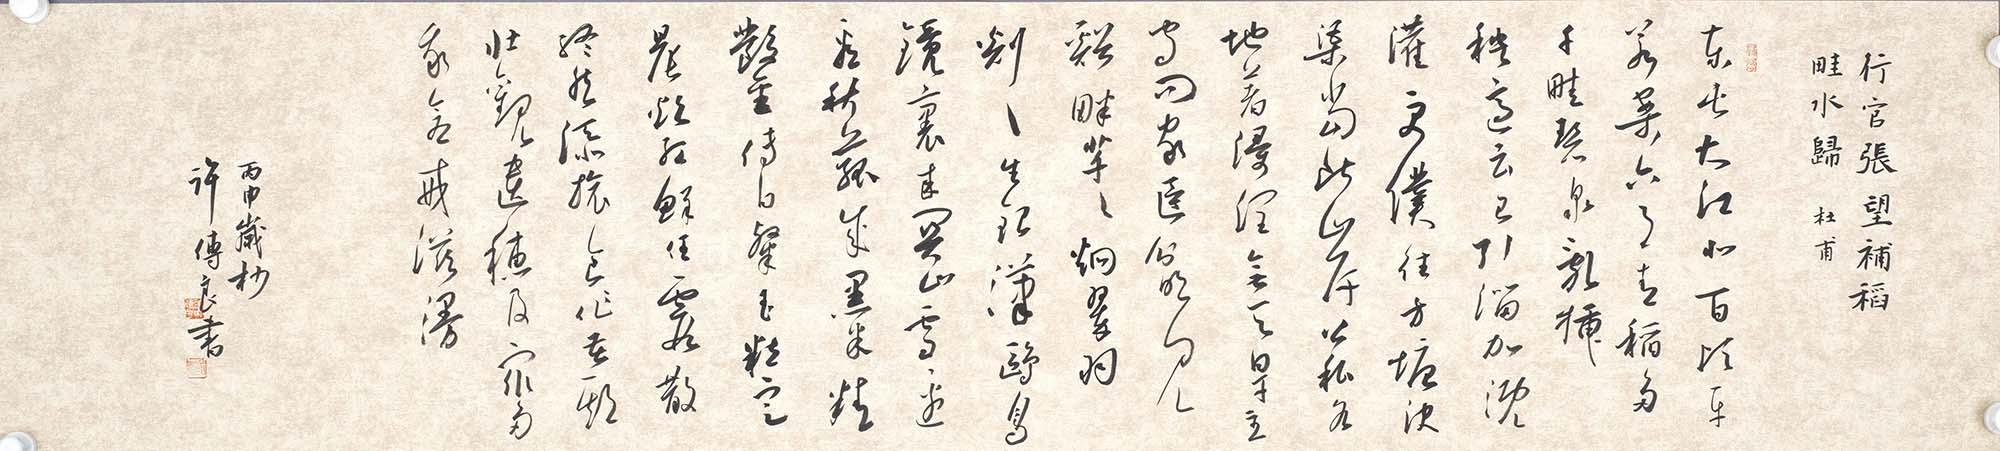 行官張望補稻
畦水歸 杜甫
東屯大江北百頃平
若案六月青稻多
千畦碧泉亂插
秧適云已引溜加溉
灌更僕往方塘決
渠當斷岸公私各
地著浸潤無天旱主
守問家臣分明見
谿畔芊芊炯翠羽
剡剡生銀漢鷗鳥
鏡裏來關山雪邊
看秋菰成黑米精
鑿傳白粲玉粒足
晨炊紅鮮任霞散
終然添旅食作苦期
壯觀遺穗及眾多
我倉戒滋漫
丙申歲杪
許傳良書